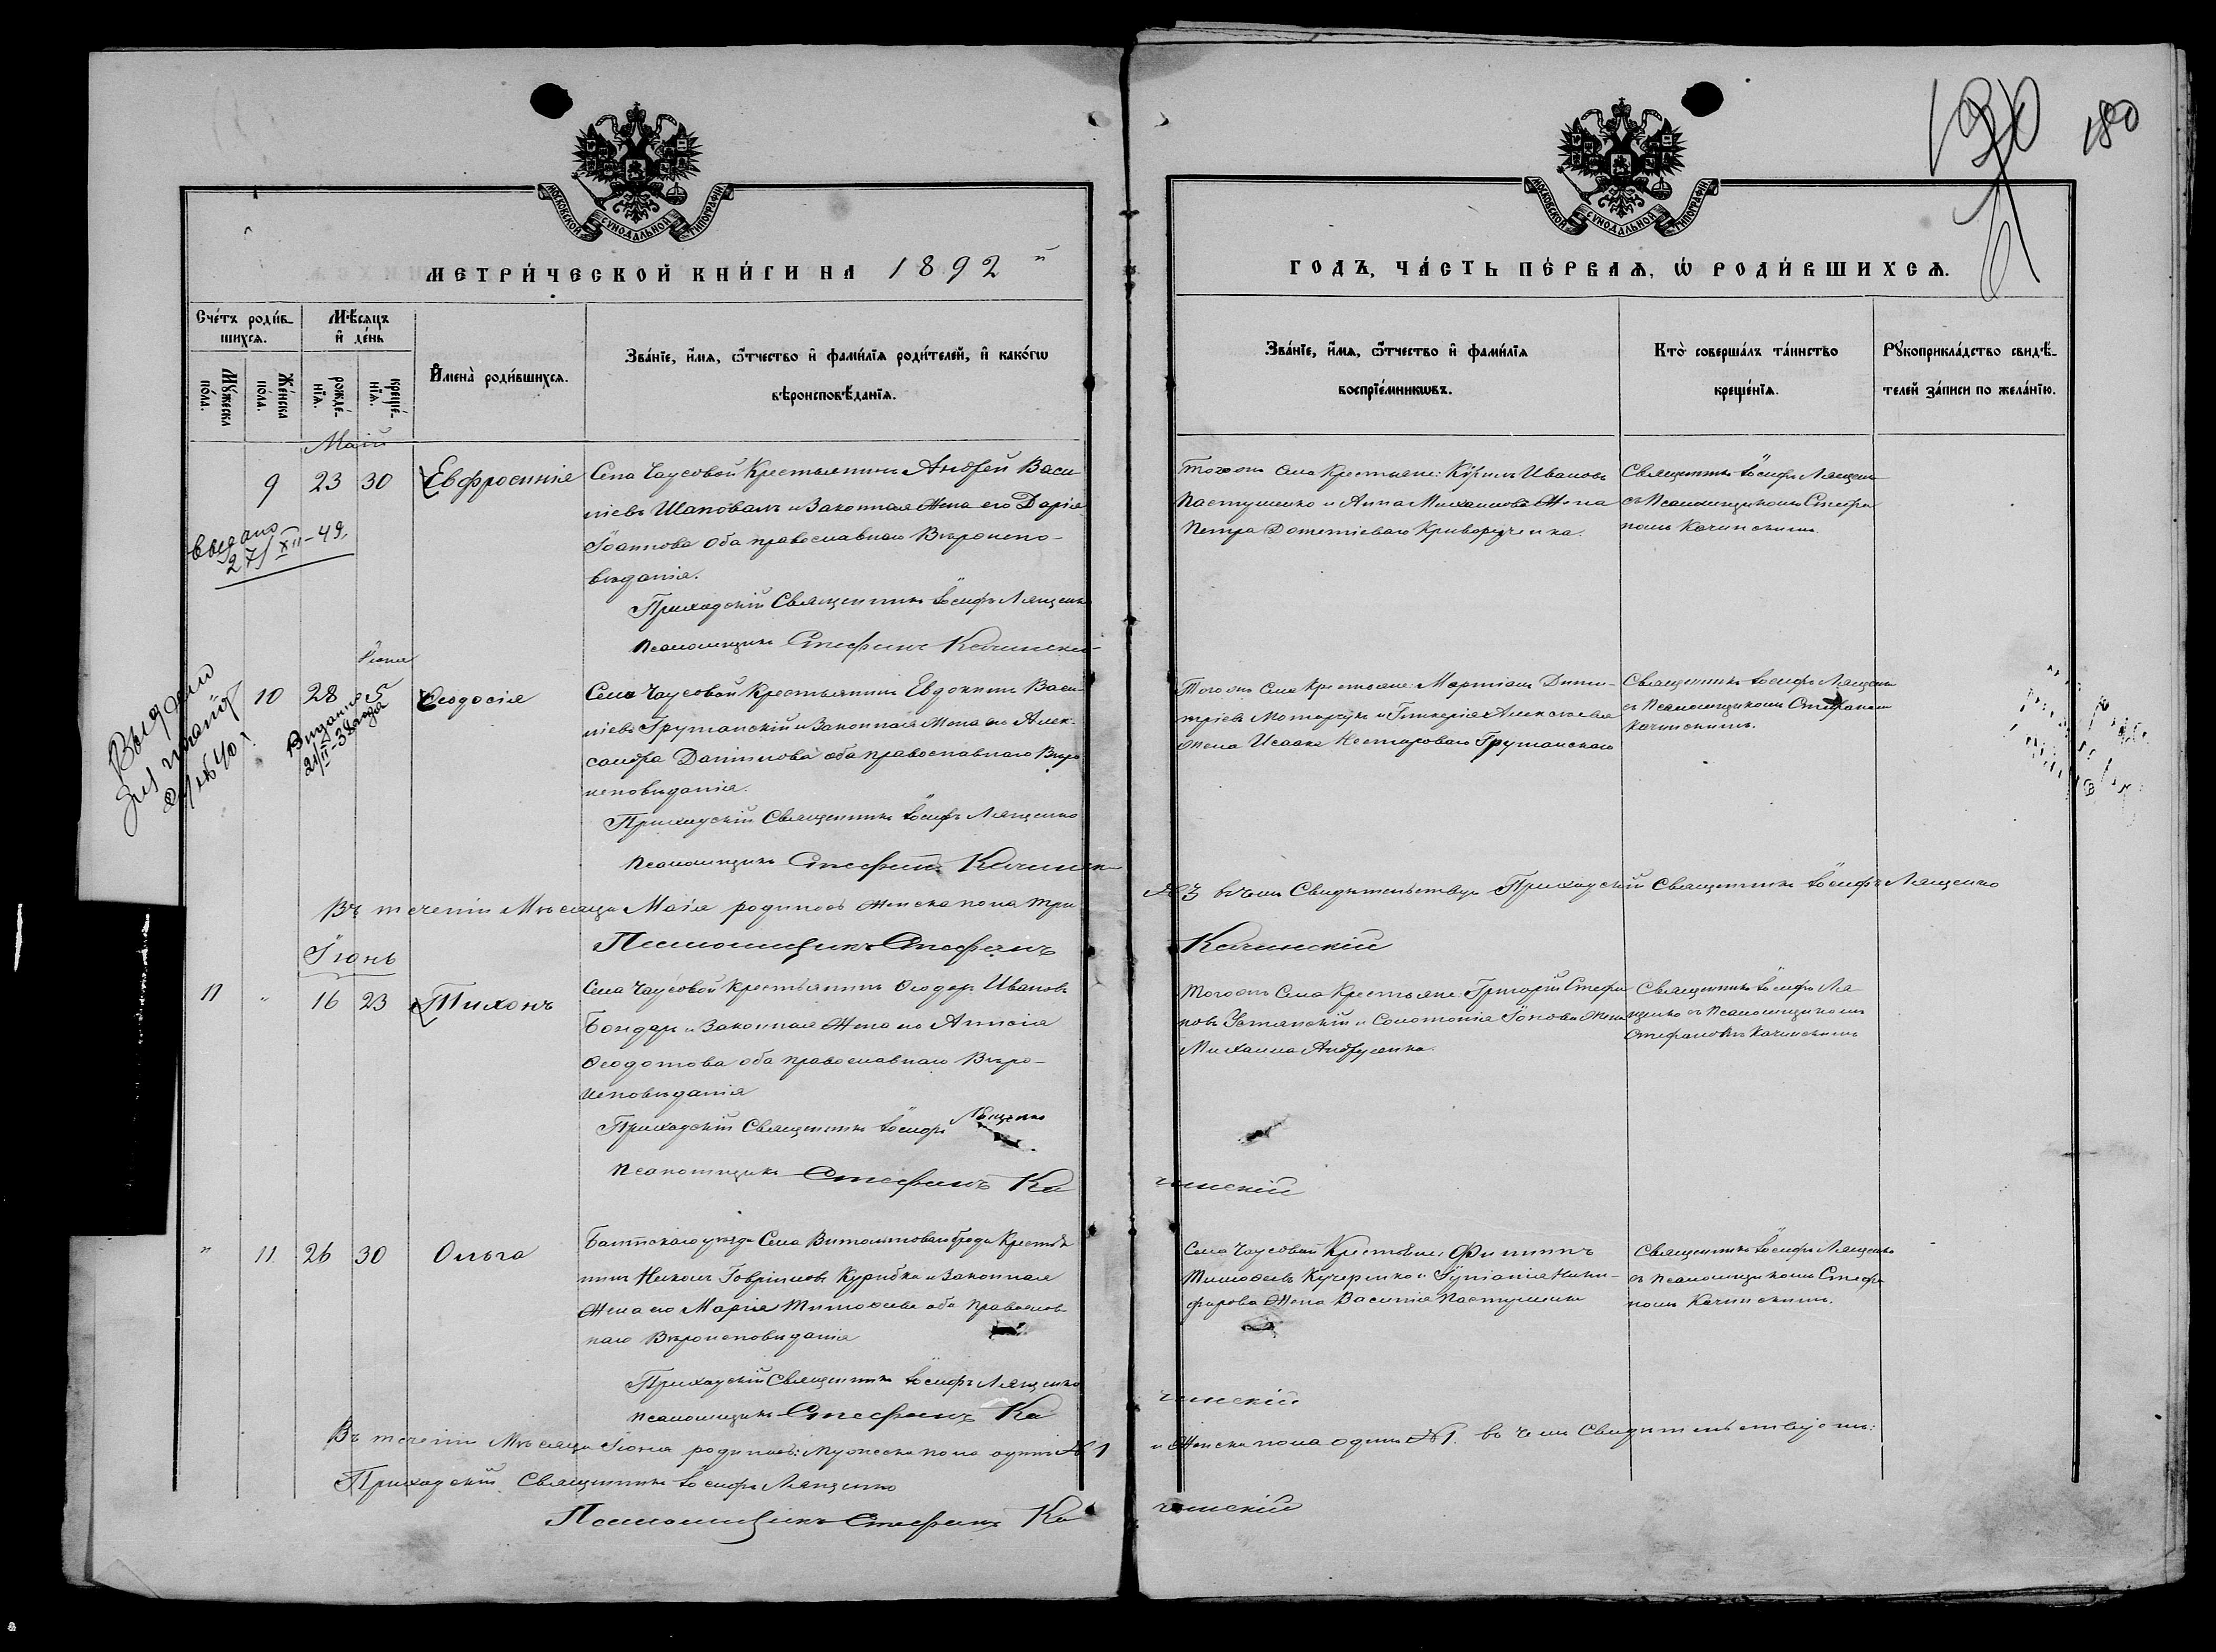 130
180
МОСКОВСКОЙ СѴНОДАЛЬНОЙ ТИПОГРАФІИ
МЕТРИ́ЧЕСКОЙ КНИ́ГИ НА 1892 й
Сче́тъ роди́в-
шихся.
Мѣ́сяцъ
и҆ де́нь
Мꙋ́жеска
по́ла.
Же́нска
по́ла.
рожде́-
нїѧ.
креще́-
нїѧ.
И҆мена̀ роди́вшихсѧ.
Зва́нїе, и҆́мѧ, ѻ҆́тчество и҆ фами́лїѧ роди́телей, и҆ како́гѡ
вѣроисповѣ́данїѧ.
Май
9 23 30 Евфросинія
Села Чаусовой Крестьянинъ Андрей Васи
ліевъ Шаповалъ и Законная Жена его Дарія
Іоаннова оба православнаго Вѣроиспо-
вѣданія.
Приходскій Священникъ Іосифъ Лященко
Псаломщикъ Стефанъ Качинскій
выдано
27/XII-49.
Іюня
10 28 5 Ѳеодосія
Села Чаусовой Крестьянинъ Евдокимъ Васи-
ліевъ Грушанскій и Законная Жена его Алек-
сандра Даниилова оба православнаго Вѣро
исповѣданія.
Приходскій Священникъ Іосифъ Лященко
Псаломщикъ Стефанъ Качински
Въ теченіи Мѣсяца Маія родилось Женска пола три
Псаломщикъ Стефанъ
Іюнь
11 " 16 23 Тихонъ
Села Чаусовой Крестьянинъ Ѳеодоръ Ивановъ
Бондарь и Законная Жена его Анисія
Ѳеодотова оба православнаго Вѣро-
исповѣданія
Приходскій Священникъ Іосифъ Лященко
Псаломщикъ Стефанъ Ка
" 11 26 30 Ольга
Балтскаго уѣзда Села Крестья
нинъ Николай Гавріиловъ и Законная
Жена его Марія Тимоѳеева оба православ
наго Вѣроисповѣданія
Приходскій Священникъ Іосифъ Лященко
Псаломщикъ Стефанъ Ка
Въ теченіи Мѣсяца Іюня родилось: Мужеска пола одинъ №1
Приходскій Священникъ Іосифъ Лященко
Псаломщикъ Стефанъ Ка
МОСКОВСКОЙ СѴНОДАЛЬНОЙ ТИПОГРАФІИ
ГОДЪ, ЧА́СТЬ ПЕ́РВАЯ, Ѡ҆ РОДИ́ВШИХСЯ.
Зва́нїе, и҆́мѧ, ѻ҆́тчество и҆ фами́лїѧ
воспрїе́мникѡвъ.
Кто̀ соверша́лъ та́инство
креще́нїѧ.
Рꙋкоприкла́дство свидѣ́-
телей за́писи по жела́нїю.
Тогожъ Села Крестьяне: Кѵрилъ Ивановъ
Пастушенко и Анна Михаилова Жена
Петра Дометіеваго Криворученка.
Священникъ Іосифъ Лященко
съ Псаломщикомъ Стефа
номъ Качинскимъ
Тогожъ Села Крестьяне: Мартіанъ Дими-
тріевъ и Гликерія Алексѣева
Жена Исаака Несторова Грушанскаго
Священникъ Іосифъ Лященко
съ Псаломщикомъ Стефаномъ
Качинскимъ.
№3 въ чемъ Свидѣтельствуетъ Приходскій Священникъ Іосифъ Лященко
Качинскій
Тогожъ Села Крестьяне: Григорій Стефа
новъ Устянскій и Соломонія Іонова Жена
Михаила Андрусенка.
Священникъ Іосифъ Ля
щенко съ Псаломщикомъ
Стефаномъ Качинскимъ
чинскій
Села Чаусовой Крестьяне: Филиппъ
Тимоѳеевъ Кучеренко и Іуліанія Ники-
форова Жена Василія Пастушенка
Священникъ Іосифъ Лященко
съ Псаломщикомъ Стефа
номъ Качинскимъ.
чинскій
и Женска пола одинъ №1. въ чемъ Свидѣтельствуютъ:
чинскій